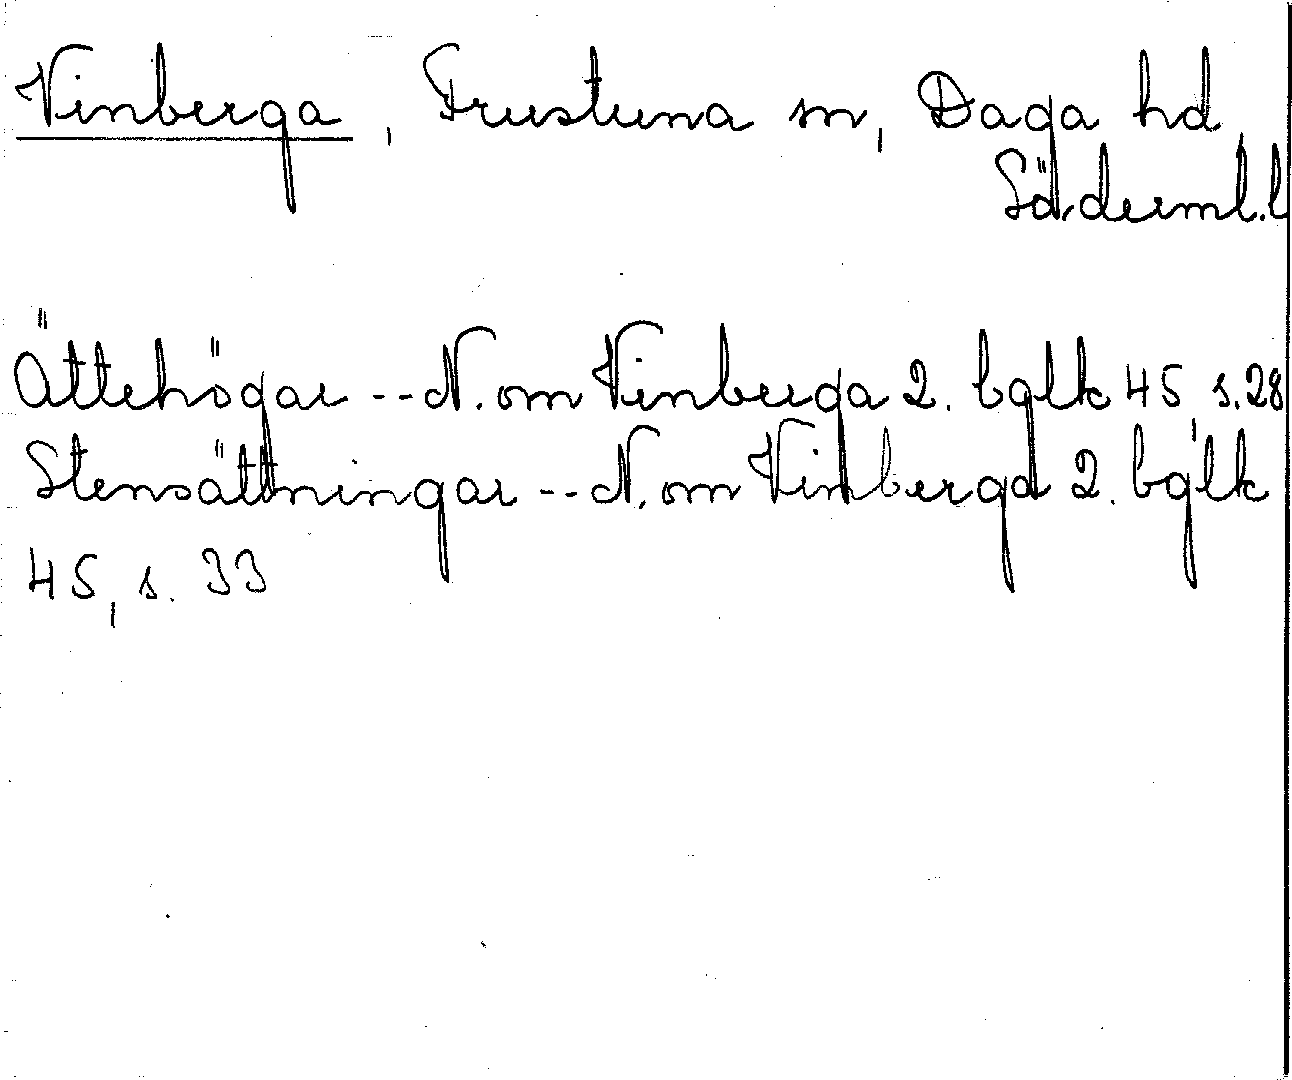 Vinberga, Frustuna sn, Daga hd,
Söderml.l
Ättehögar -- N. om Vinberga 2. bglk 45, s.28
Stensättningar -- N. om Vinberga 2. bglk
45, s. 33